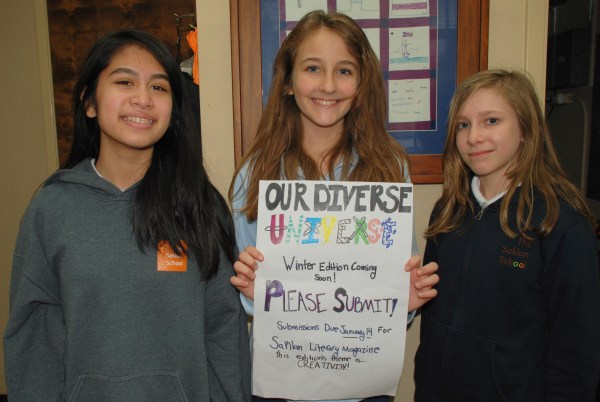 OUR DIVERSE
UNIVERSE
Winter Edition Coming
Soon!
PLEASE SUBMIT!
Submissions Due January 14 For
Saklan Literary Magazine
this edition's theme is...
CREATIVITY!
School
The
Saklan
School